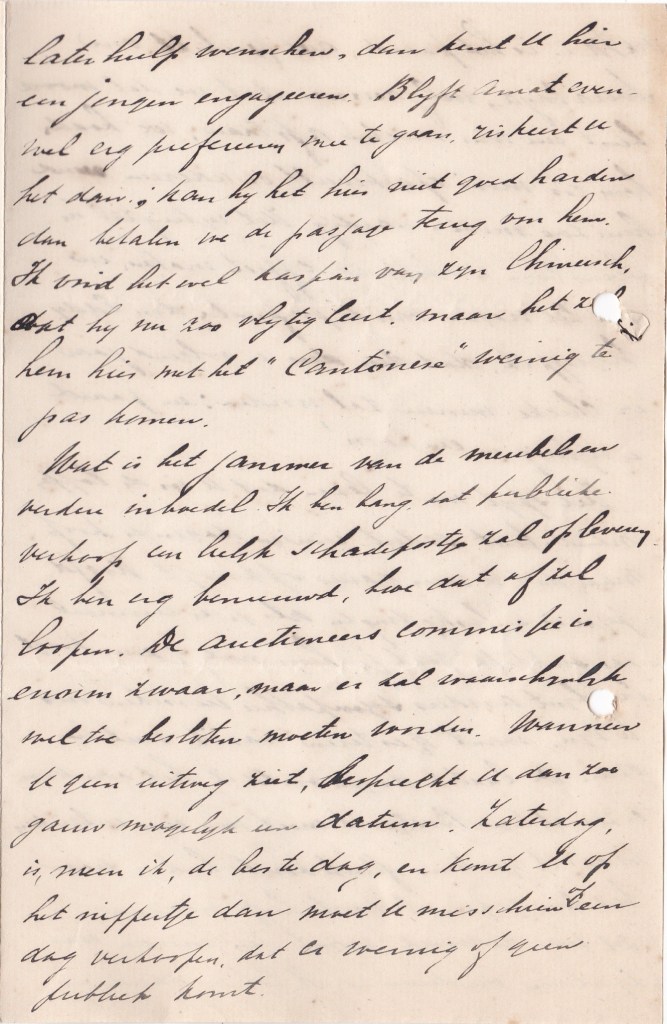 later hulp wenschen, dan kunt U hier
een jongen engageeren. Blyft Amat even-
wel erg prefereeren mee te gaan, riskeert U
het dan; kan hy het hier niet goed harden
dan betalen we de passage terug van hem.
Ik vind het wel kaspian van zyn Chineesch,
dat hy nu zoo vlytig leert, maar het zal
hem hier met het "Cantonese" weinig te
pas komen.
Wat is het jammer van de meubels en
verdere inboedel. Ik ben bang dat publieke
verkoop een lelyk schadepostje zal opleveren.
Ik ben erg benieuwd, hoe dat af zal
loopen. De auctioneers commissie is
enorm zwaar, maar er zal waarschynlyk
wel toe besloten moeten worden. Wanneer
U geen uitweg ziet, bespreekt U dan zoo
gauw mogelyk een datum. Zaterdag,
is, meen ik, de beste dag, en komt U op
het nippertje dan moet U misschien op een
dag verkoopen, dat er weinig of geen
publiek komt.